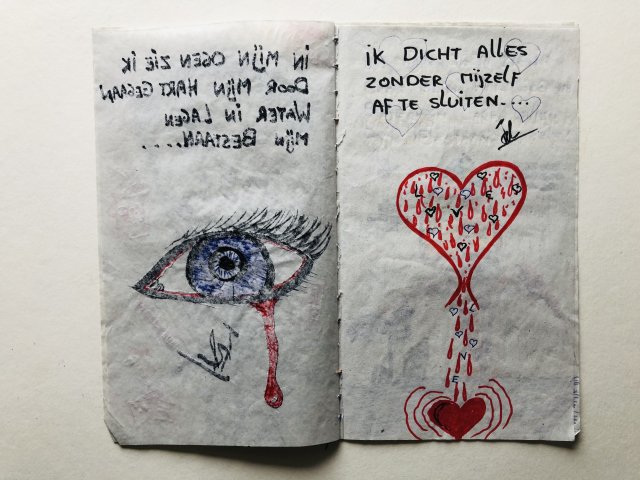 IN MIJN OGEN ZIE IK
DOOR MIJN HART GEGAAN
WATER IN LAGEN
MIJN BESTAAN......
IK DICHT ALLES
ZONDER MIJZELF
AF TE SLUITEN....